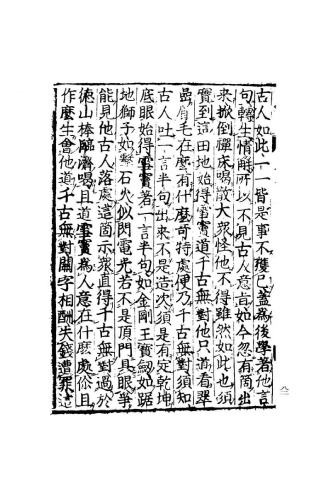 古人如此一一皆是事不獲已蓋為後學著他言
句轉生情解所以不見古人意旨如今忽有箇出
來掀倒禪床喝散大眾怪他不得雖然如此也須
實到這田地始得雪竇道千古無對他只道看翠
嵓眉毛在麼有什麼奇特處便乃千古無對須知
古人吐一言半句出來不是造次須是有定乾坤
底眼始得雪竇著一言半句如金剛王寶劔如踞
地獅子如擊石火似閃電光若不是頂門具眼爭
能見他古人落處這箇示衆直得千古無對過於
德山棒臨濟喝且道雪竇為人意在什麽處你且
作麼生會他道千古無對關字相酬失錢遭罪這